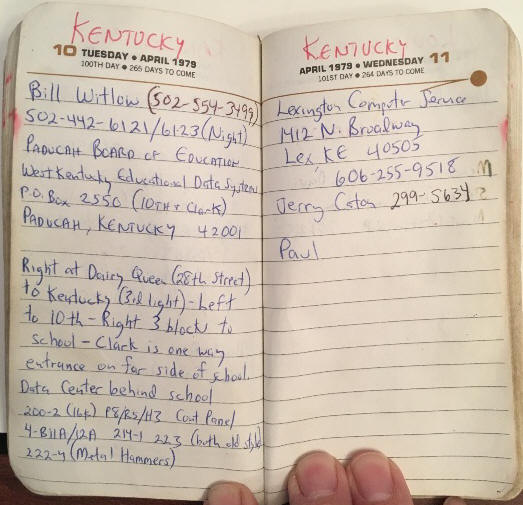 KENTUCKY
10 TUESDAY • APRIL 1979
100TH DAY • 265 DAYS TO COME
Bill Witlow (502-554-3499)
502-442-6121/6123 (Night)
PADUCAH BOARD OF EDUCATION
West Kentucky Educational Data Systems
P.O. Box 2550 (10TH + Clark)
PADUCAH, KENTUCKY 42001
Right at Dairy Queen (28th Street)
to Kentucky (3rd light) - Left
to 10th - Right 3 block to
school - Clark is one way
entrance on far side of school.
Data Center behind school
200-2 (16K) P8/R5/H3 Cont Panel
4-B11A/12A 214-1 223 (both old style)
222-4 (Metal Hammers)
KENTUCKY
APRIL 1979 • WEDNESDAY 11
101ST DAY • 264 DAYS TO COME
Lexington Computer Service
1412 N. Broadway
Lex KE 40505
606-255-9518
Jerry 299-5634
Paul